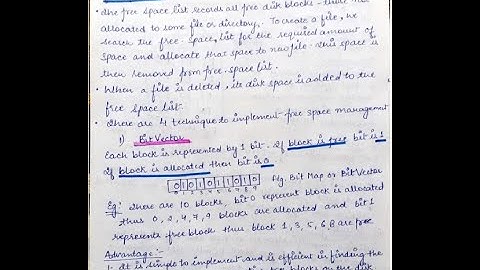 • The free space list records all free disk blocks - those not
allocated to some file or directory. To create a file, we
search the free-space list for the required amount of
space and allocate that space to new file. This space is
then removed from free-space list.
• When a file is deleted, its disk space is added to the
free space list.
• There are 4 technique to implement free space management
1) Bit Vector
Each block is represented by 1 bit. If block is free bit is 1
If block is allocated then bit is 0
0 1 0 1 0 1 1 0 1 0 Fig. Bit Map or Bit Vector
0 1 2 3 4 5 6 7 8 9
Eg:- There are 10 blocks, bit 0 represent block is allocated
thus 0, 2, 4, 7, 9 blocks are allocated and bit 1
represents free block thus block 1, 3, 5, 6, 8 are free
Advantage:-
1. It is simple to implement and is efficient in finding the
blocks on the disk